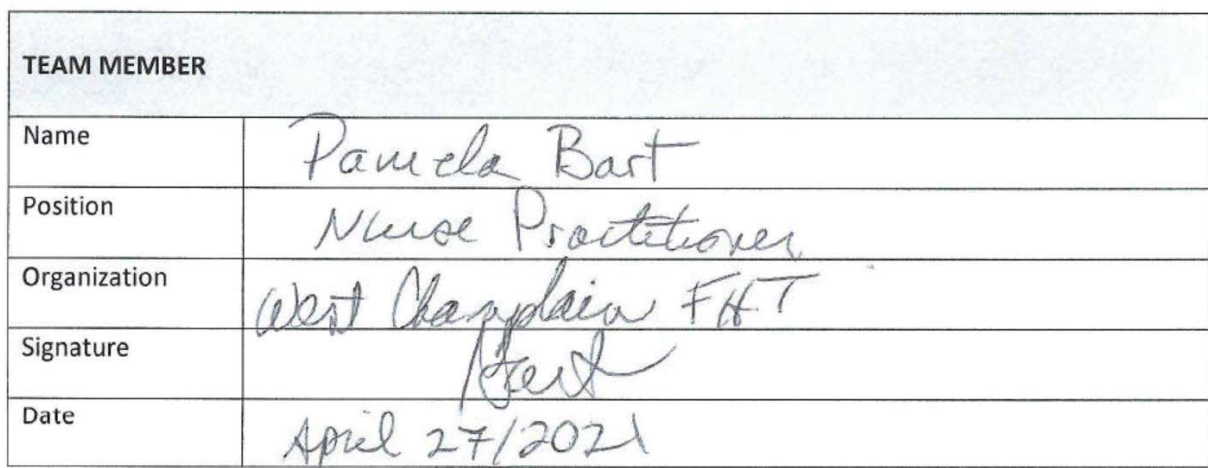 TEAM MEMBER
Name Pamela Bart
Position Nurse Practitioner
Organization West Champlain FHT
Signature
Date April 27/2021